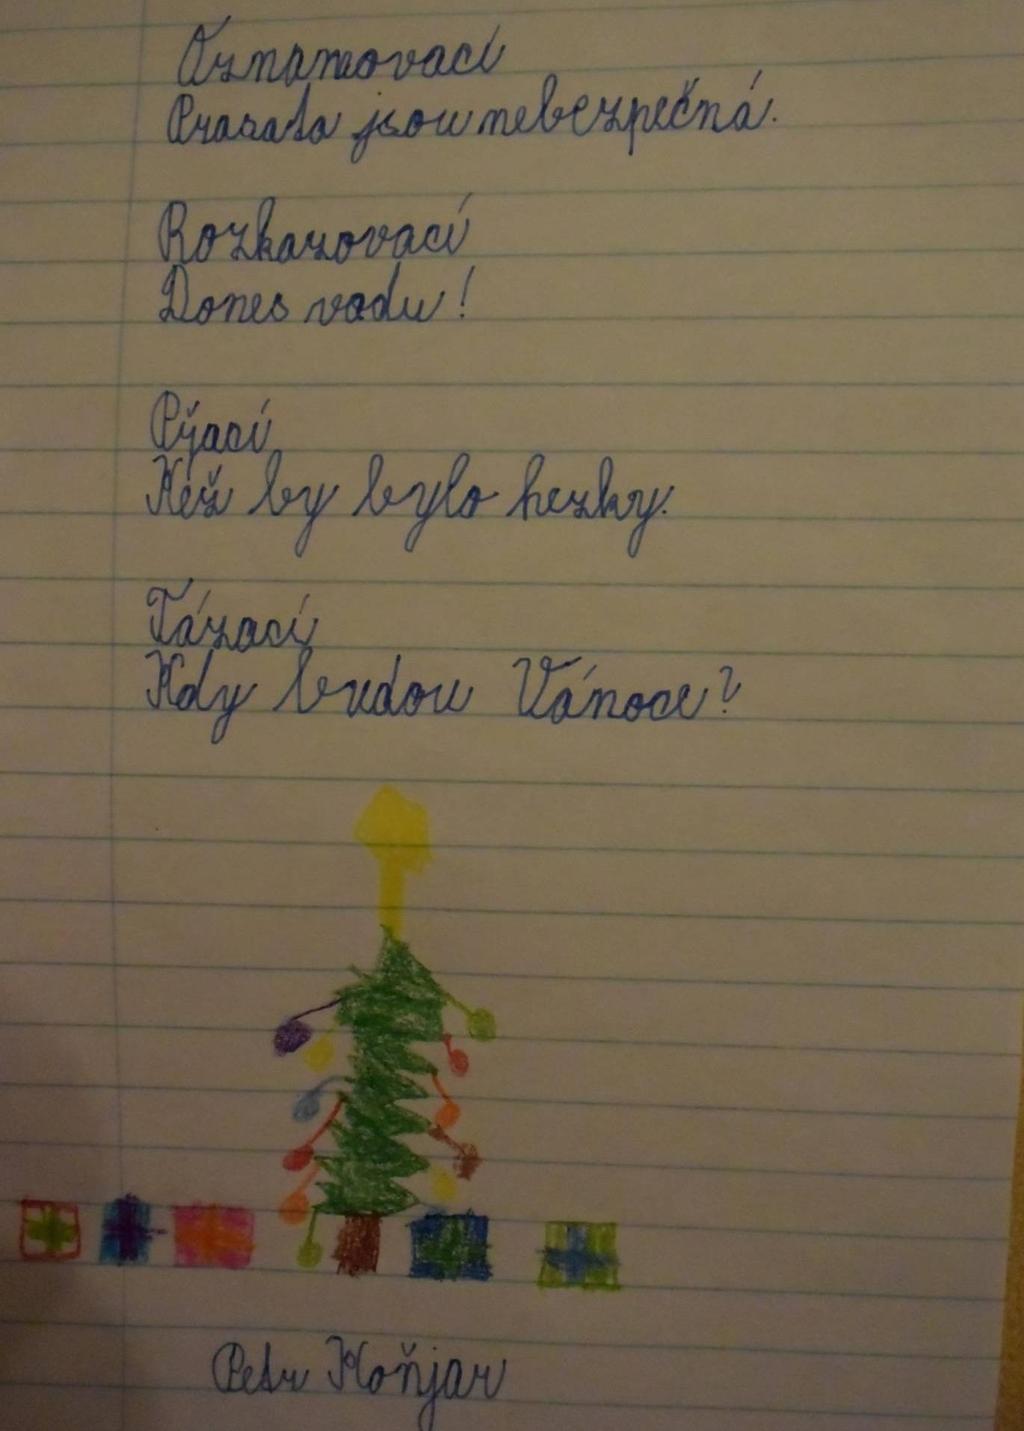 Oznamovací
Prasata jsou nebezpečná.
Rozkazovací
Dones vodu!
Přací
Kéž by bylo hezky.
Tázací
Kdy budou Vánoce?
Petr Koňjar